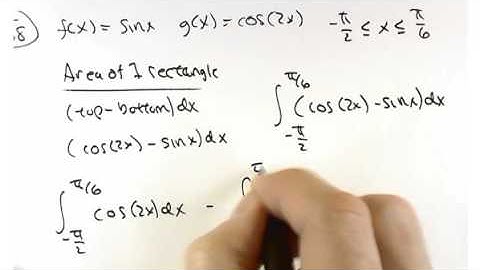 8) f(x) = sinx g(x) = cos(2x) -π/2 ≤ x ≤ π/6
Area of 1 rectangle
(top - bottom)dx
(cos(2x) - sinx)dx
∫_{-π/2}^{π/6} (cos(2x) - sinx)dx
∫_{-π/2}^{π/6} cos(2x)dx - ∫^π